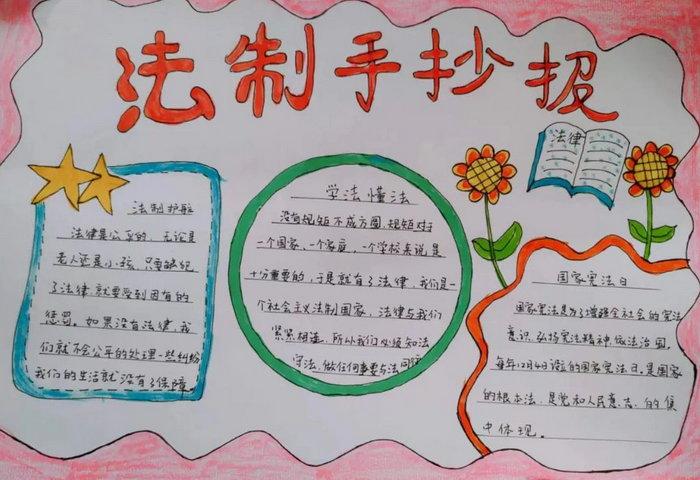 法制手抄报
法律
法制护航
法律是公平的，无论是
老人还是小孩，只要触犯
了法律，就要受到固有的
惩罚。如果没有法律，我
们就不会公平的处理一些纠纷
我们的生活就没有了保障。
学法懂法
没有规矩不成方圆，规矩对于
一个国家、一个家庭，一个学校来说是
十分重要的，于是就有了法律，我们是一
个社会主义法制国家，法律与我们
紧紧相连，所以我们必须知法
守法，做任何事要与法同行
国家宪法日
国家宪法是为了增强全社会的宪法
意识，弘扬宪法精神，依法治国，
每年12月4日设立的国家宪法日。是国家
的根本法，是党和人民意志的集
中体现。